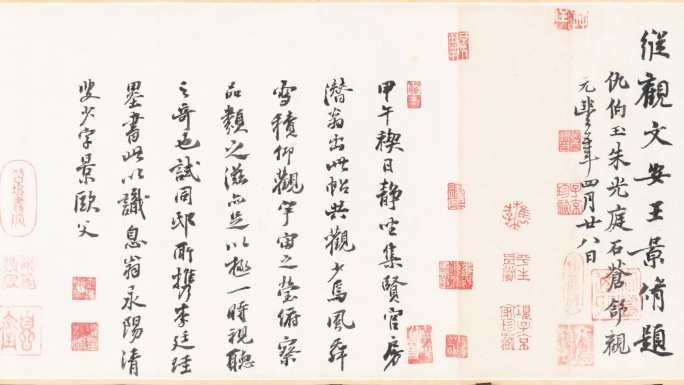 縱觀文安王景脩題
仇伯玉朱光庭石蒼舒觀
元豐五年四月廿八日
甲午禊日靜坐集賢官房
潛翁出此帖共觀少焉風舞
雪積仰觀宇宙之瑩俯察
品類之滋亦足以極一時視聽
之奇也試同邸所攜李廷珪
墨書此以識息翁永陽清
叟少字景歐父